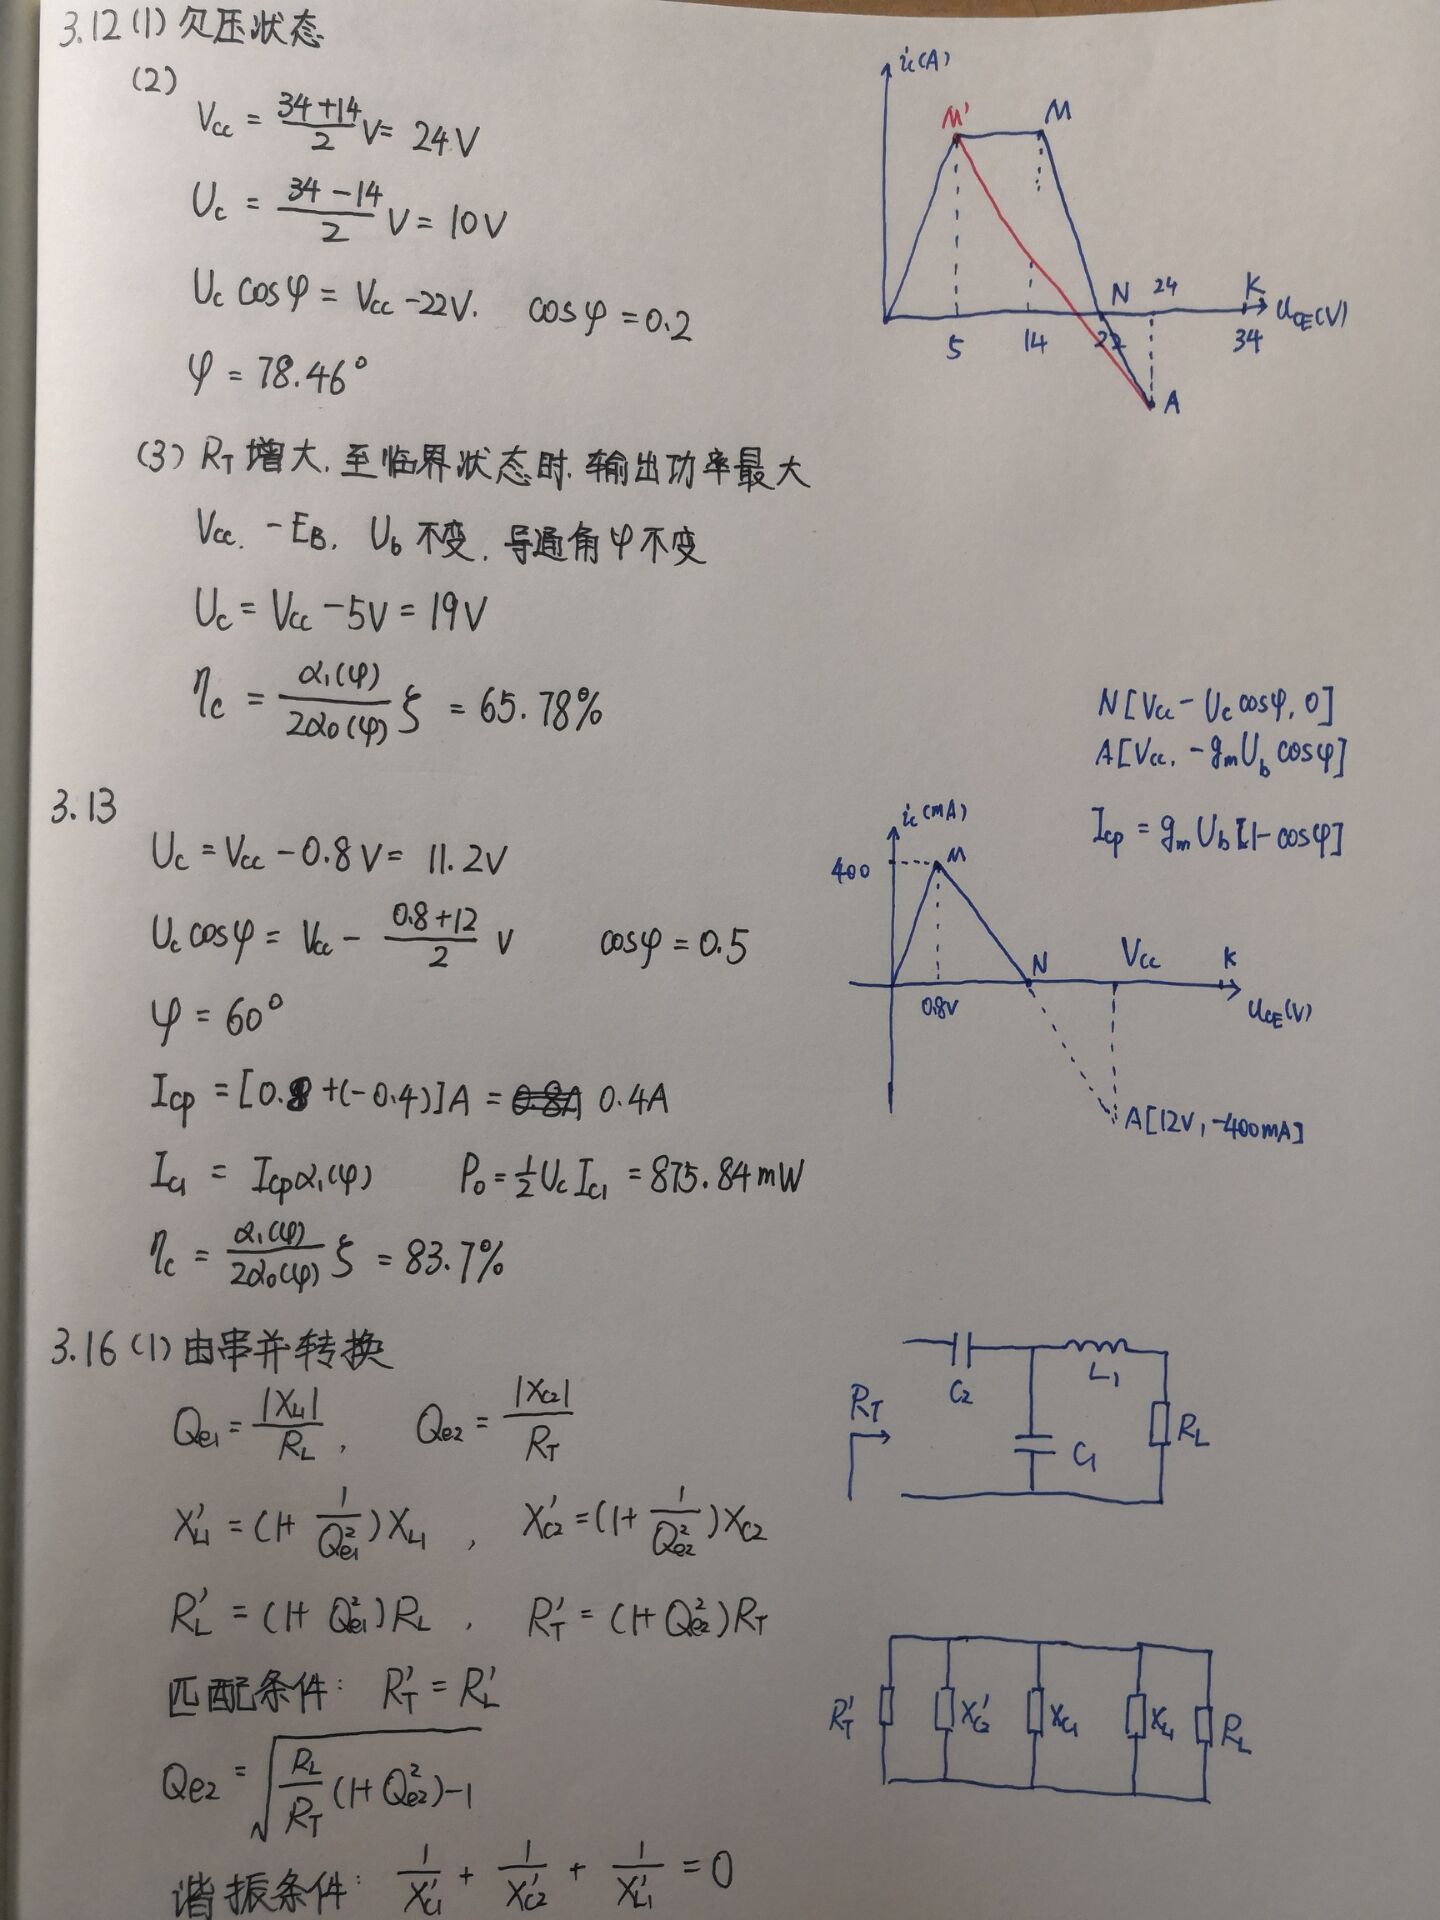 3.12 (1) 欠压状态
(2)
Vcc = (34+14)/2 V = 24V
Uc = (34-14)/2 V = 10V
Uc cosφ = Vcc -22V. cosφ = 0.2
φ = 78.46°
(3) RT 增大, 至临界状态时, 输出功率最大
Vcc, -EB, Ub 不变, 导通角φ不变
Uc = Vcc -5V = 19V
ηc = α₁(φ)/2α₀(φ) ξ = 65.78%
ic(A)
M' M
N 24 K
uCE(V)
5 14 22 34
A
N[Vcc - Uc cosφ, 0]
A[Vcc, -gmUb cosφ]
Icp = gmUb[1-cosφ]
3.13
Uc = Vcc -0.8V = 11.2V
Uc cosφ = Vcc - (0.8+12)/2 V cosφ = 0.5
φ = 60°
Icp = [0.8 +(-0.4)]A = 0.4A
Ic1 = Icpα₁(φ) Po = 1/2 Uc Ic1 = 875.84mW
ηc = α₁(φ)/2α₀(φ) ξ = 83.7%
ic(mA)
400 M
N Vcc K
0.8V uCE(V)
A[12V, -400mA]
3.16 (1) 由串并转换
Qe1 = |XL1|/RL, Qe2 = |XC2|/RT
X'L1 = (1+ 1/Qe1²)XL1, X'C2 = (1+ 1/Qe2²)XC2
R'L = (1+ Qe1²)RL, R'T = (1+Qe2²)RT
匹配条件: R'T = R'L
Qe2 = √(RL/RT (1+Qe2²)-1)
谐振条件: 1/X'C1 + 1/X'C2 + 1/X'L1 = 0
C2 L1
RT C1 RL
R'T X'C2 XC1 XL1 RL